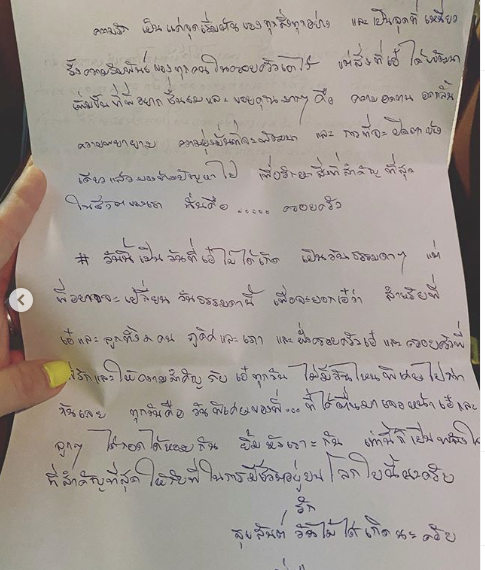 ความรัก เป็นแค่จุดเริ่มต้นของทุกสิ่งทุกอย่าง และเป็นจุดที่เหนี่ยว
รั้งความสัมพันธ์ของทุกคนในครอบครัวเอาไว้ แต่สิ่งที่เอ๋ได้
เพิ่มขึ้นที่พี่อยากชื่นชมและขอบคุณมากๆ คือ ความอดทน อดกลั้น
ความพยายาม ความมุ่งมั่นที่จะพัฒนา และ การที่จะ
เสี้ยวแล้ว ปัญหาไป เพื่อรักษาสิ่งที่สำคัญที่สุด
ในชีวิตของเรา นั่นคือ ..... ครอบครัว
# วันนี้เป็นวันที่เอ๋ไม่ได้เกิด เป็นวันธรรมดาๆ แต่
พี่อยากจะเปลี่ยนวันธรรมดานี้ เพื่อจะบอกเอ๋ว่า สำหรับพี่
เอ๋และลูกทั้ง คน และ และ ครอบครัวเอ๋ และครอบครัวพี่
รักและให้ความสำคัญ กับ เอ๋ทุกวัน ไม่มีวันไหนพิเศษไปกว่า
วันเลย ทุกวันคือ วันพิเศษของพี่... ที่ได้ตื่นมาเจอหน้าเอ๋และ
ลูกๆ ได้กอดได้หอมกัน ยิ้มหัวเราะกัน เท่านี้ก็เป็น
ที่สำคัญที่สุดให้กับพี่ในการมีชีวิตอยู่บนโลกใบนี้นะครับ
รัก
สุขสันต์ วันไม่ได้เกิดนะครับ